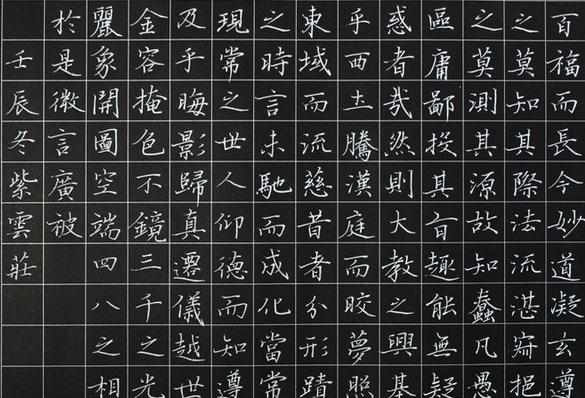 百福而長今妙道凝玄遵
之莫知其際法流湛寂挹
之莫測其源故知蠢凡愚
區庸鄙投其旨趣能無疑
惑者哉然則大教之興基
乎西土騰漢庭而皎夢照
東域而流慈昔者分形蹟
之時言未馳而成化當常
現常之世人仰德而知遵
及乎晦影歸真遷儀越世
金容掩色不鏡三千之光
麗象開圖空端四八之相
於是微言廣被
壬辰冬紫雲莊